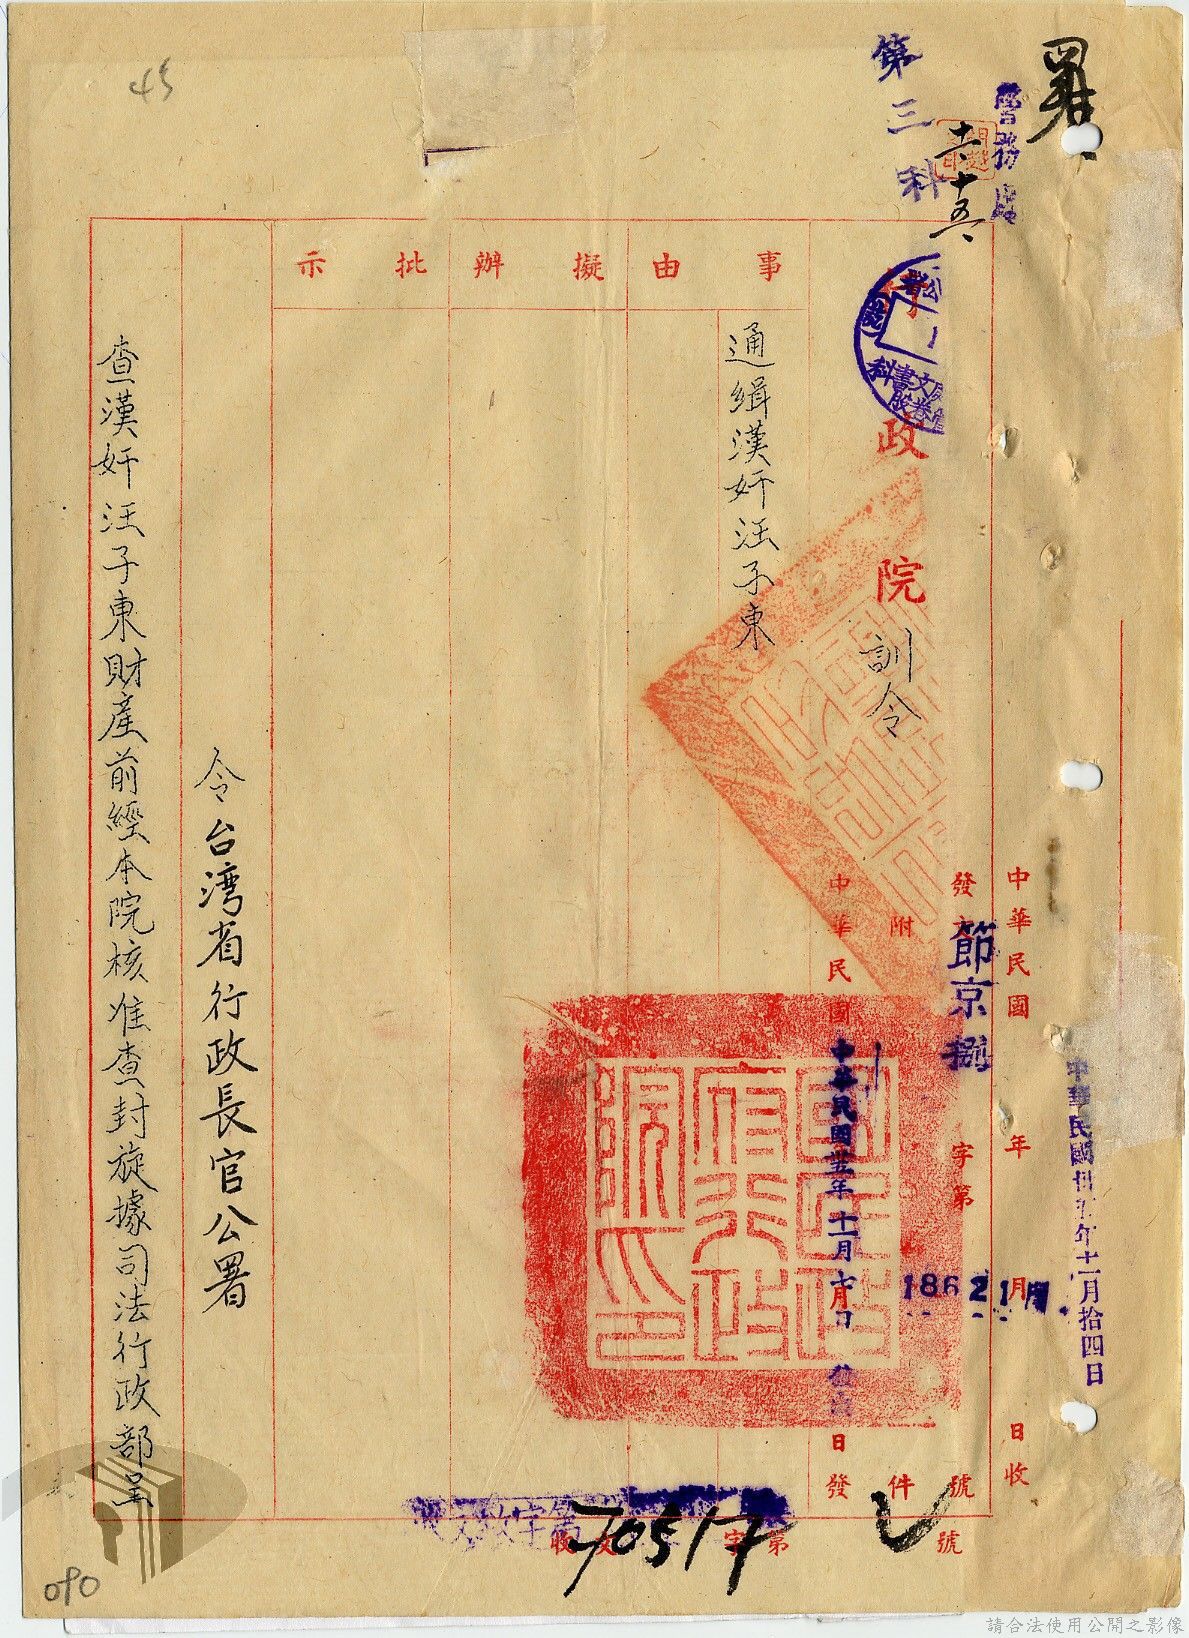 警務處
第三科
十一、十五、
中華民國卅五年十一月拾四日
中華民國 年 月 日收
發文節京捌字第18621號
附 件
行政院訓令
中華民國
中華民國卅五年十一月七日
日發
事由
擬辦
批示
通緝漢奸汪子東
收文 字第70517號
令台灣省行政長官公署
查漢奸汪子東財產前經本院核准查封旋據司法行政部呈
國民政府行政院印
45
090
請合法使用公開之影像